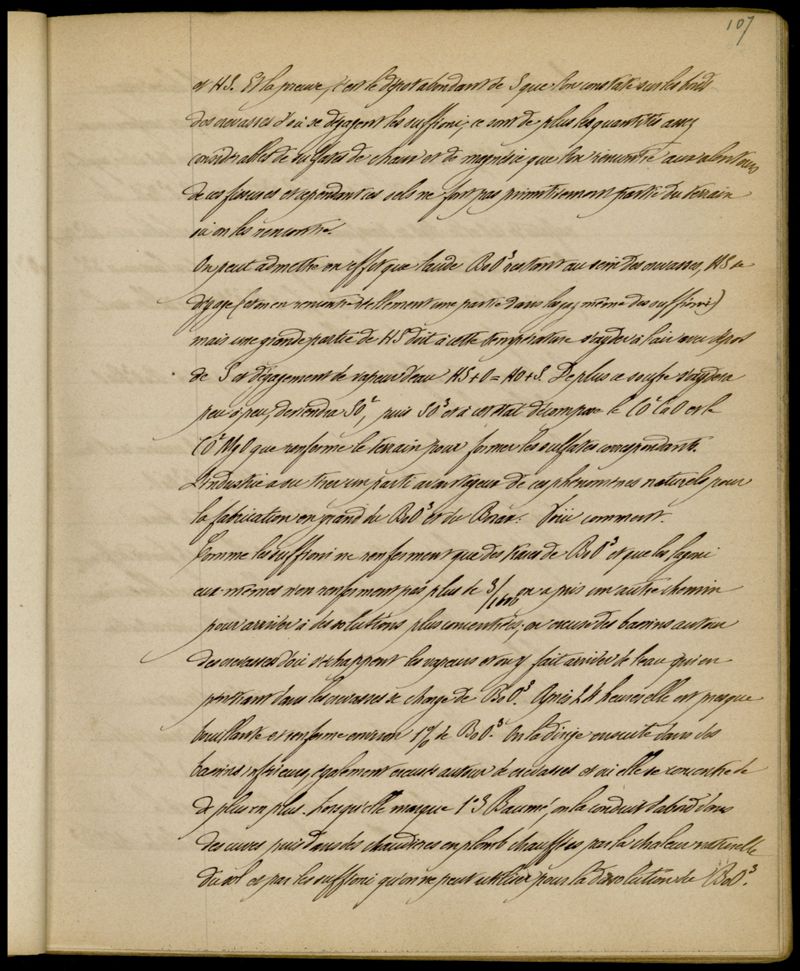 107
et HS. Et la preuve, c'est le dépot abondant de S que l'on constate sur les bords
des crevasses d'où se dégagent les suffioni; ce sont de plus les quantités assez
considérables de sulfates de chaux et de magnésie que l'on rencontre aux alentours
de ces fissures et cependant ces sels ne font pas primitivement partie du terrain
où on les rencontre.
On peut admettre en effet que l'acide BoO³ restant au sein des crevasses, HS se
dégage (et on en rencontre réellement une partie dans le gaz même des suffioni)
mais une grande partie de HS doit à cette température s'oxyder à l'air avec dépot
de S et dégagement de vapeur d'eau HS + O = HO + S. De plus ce soufre s'oxydera
peu à peu, deviendra SO², puis SO³ et à cet état décompose le CO²CaO et le
CO²MgO que renferme le terrain pour former les sulfates correspondants.
L'industrie a su tirer un parti avantageux de ces phénomènes naturels pour
la fabrication en grand du BoO³ et du Borax. Voici comment.
Comme les suffioni ne renferment que des traces de BoO³ et que les lagoni
eux-mêmes n'en renferment pas plus de 3/1000 on a pris un autre chemin
pour arriver à des solutions plus concentrées; on creuse des bassins autour
des crevasses d'où s'échappent les vapeurs et on y fait arriver de l'eau qui en
pénétrant dans les crevasses se charge de BoO³. Après 24 heures elle est presque
bouillante et renferme environ 1% de BoO³. On la dirige ensuite dans des
bassins inférieurs, également creusés autour de crevasses et où elle se concentre de
de plus en plus. Lorsqu'elle marque 1°5 Baumé, on la conduit d'abord dans
des cuves puis dans des chaudières en plomb chauffées par la chaleur naturelle
du sol et par les suffioni qu'on ne peut utiliser pour la dissolution de BoO³.